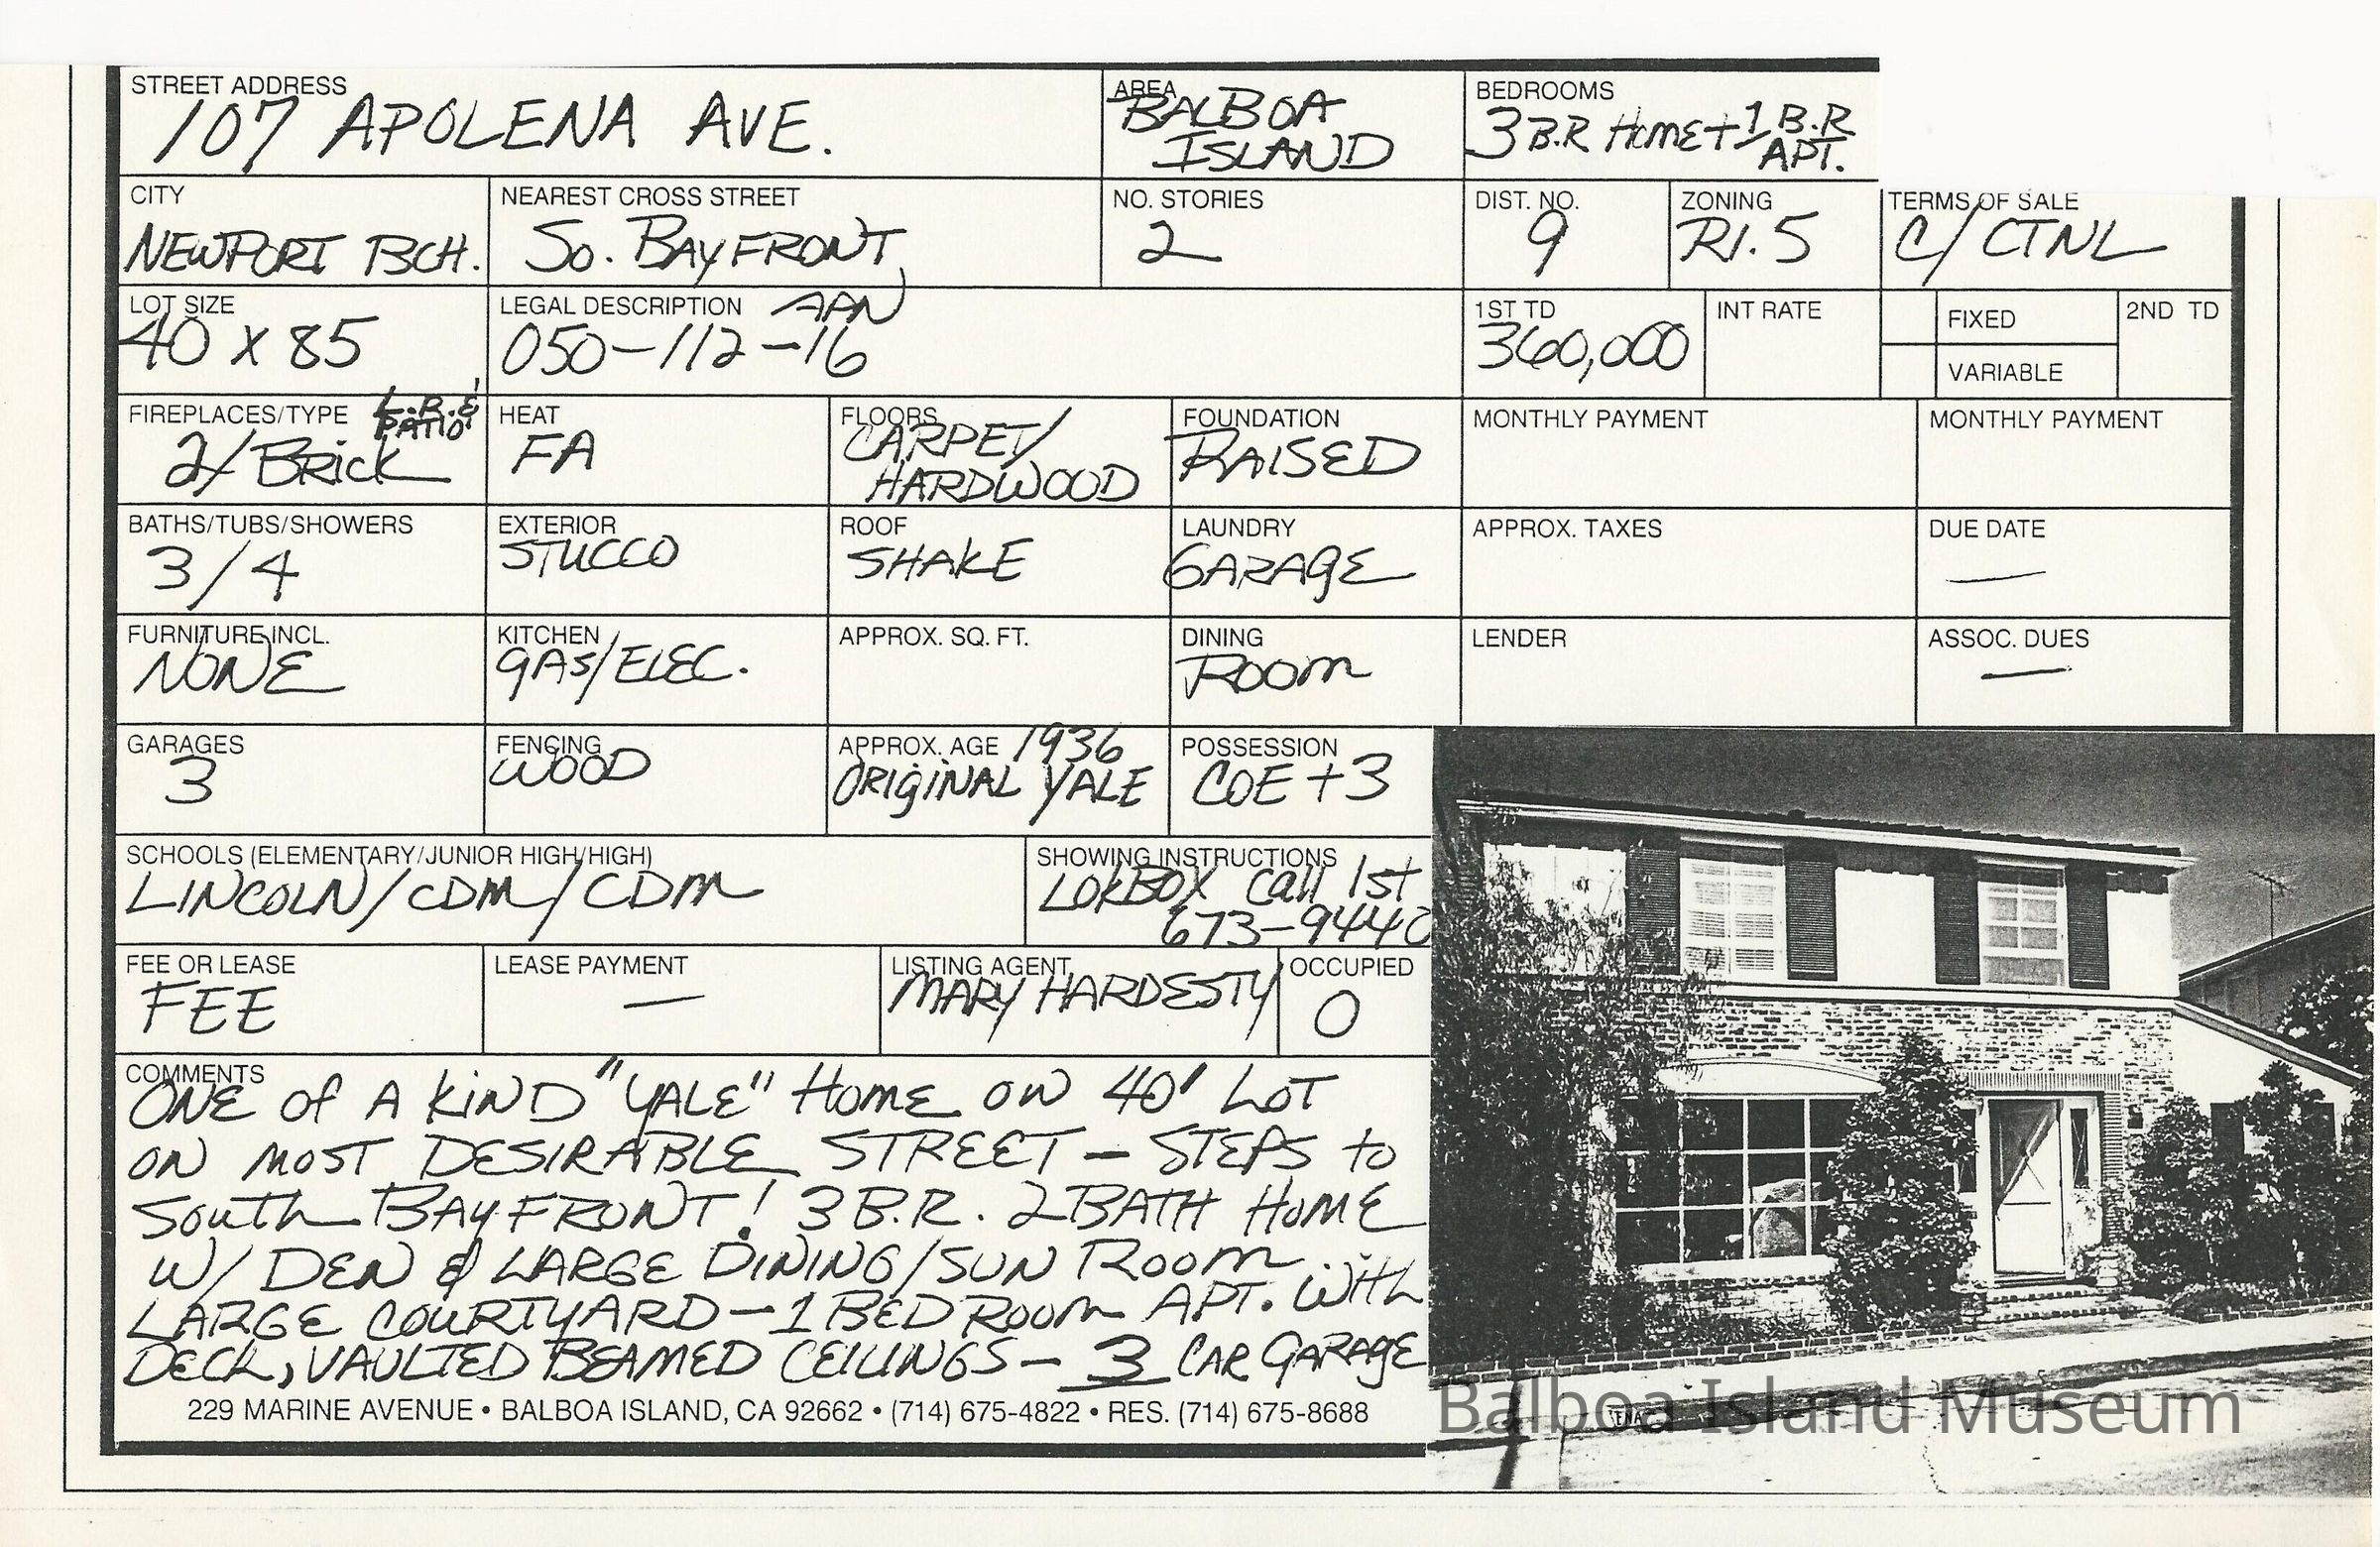 STREET ADDRESS
107 APOLENA AVE.
AREA
BALBOA
ISLAND
BEDROOMS
3 B.R HOME + 1 B.R
APT.
CITY
NEWPORT BCH.
NEAREST CROSS STREET
SO. BAYFRONT
NO. STORIES
2
DIST. NO.
9
ZONING
R1.5
TERMS OF SALE
C/CTNL
LOT SIZE
40 X 85
LEGAL DESCRIPTION APN
050-112-16
1ST TD
360,000
INT RATE
FIXED
VARIABLE
2ND TD
FIREPLACES/TYPE L.R. &
PATIO
2/BRICK
HEAT
FA
FLOORS
CARPET/
HARDWOOD
FOUNDATION
RAISED
MONTHLY PAYMENT
MONTHLY PAYMENT
BATHS/TUBS/SHOWERS
3/4
EXTERIOR
STUCCO
ROOF
SHAKE
LAUNDRY
GARAGE
APPROX. TAXES
DUE DATE
—
FURNITURE INCL.
NONE
KITCHEN
GAS/ELEC.
APPROX. SQ. FT.
DINING
ROOM
LENDER
ASSOC. DUES
—
GARAGES
3
FENCING
WOOD
APPROX. AGE 1936
ORIGINAL YALE
POSSESSION
COE + 3
SCHOOLS (ELEMENTARY/JUNIOR HIGH/HIGH)
LINCOLN/CDM/CDM
SHOWING INSTRUCTIONS
LOKBOX Call 1st
673-9440
FEE OR LEASE
FEE
LEASE PAYMENT
—
LISTING AGENT
MARY HARDESTY
OCCUPIED
O
COMMENTS
ONE of A KIND "YALE" HOME ON 40' LOT
ON MOST DESIRABLE STREET - STEPS to
South BAYFRONT! 3 B.R. 2 BATH HOME
W/ DEN & LARGE DINING/SUN ROOM
LARGE COURTYARD - 1 BEDROOM APT. With
DECK, VAULTED BEAMED CEILINGS - 3 CAR GARAGE
229 MARINE AVENUE • BALBOA ISLAND, CA 92662 • (714) 675-4822 • RES. (714) 675-8688
Balboa Island Museum